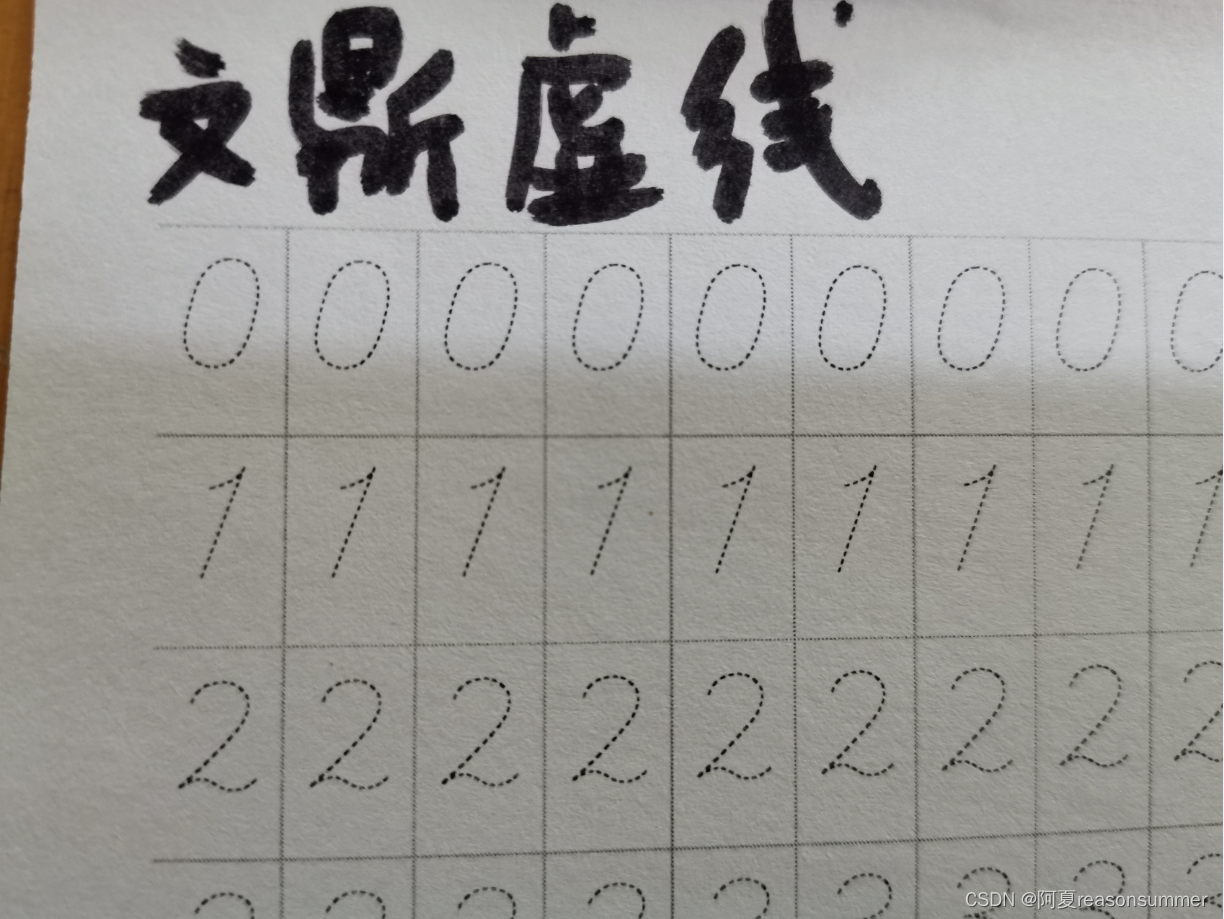 文鼎虚线
0 0 0 0 0 0 0 0 0
1 1 1 1 1 1 1 1 1
2 2 2 2 2 2 2 2 2
3 3 3 3 3 3 3 3 3
CSDN @阿夏reasonsummer